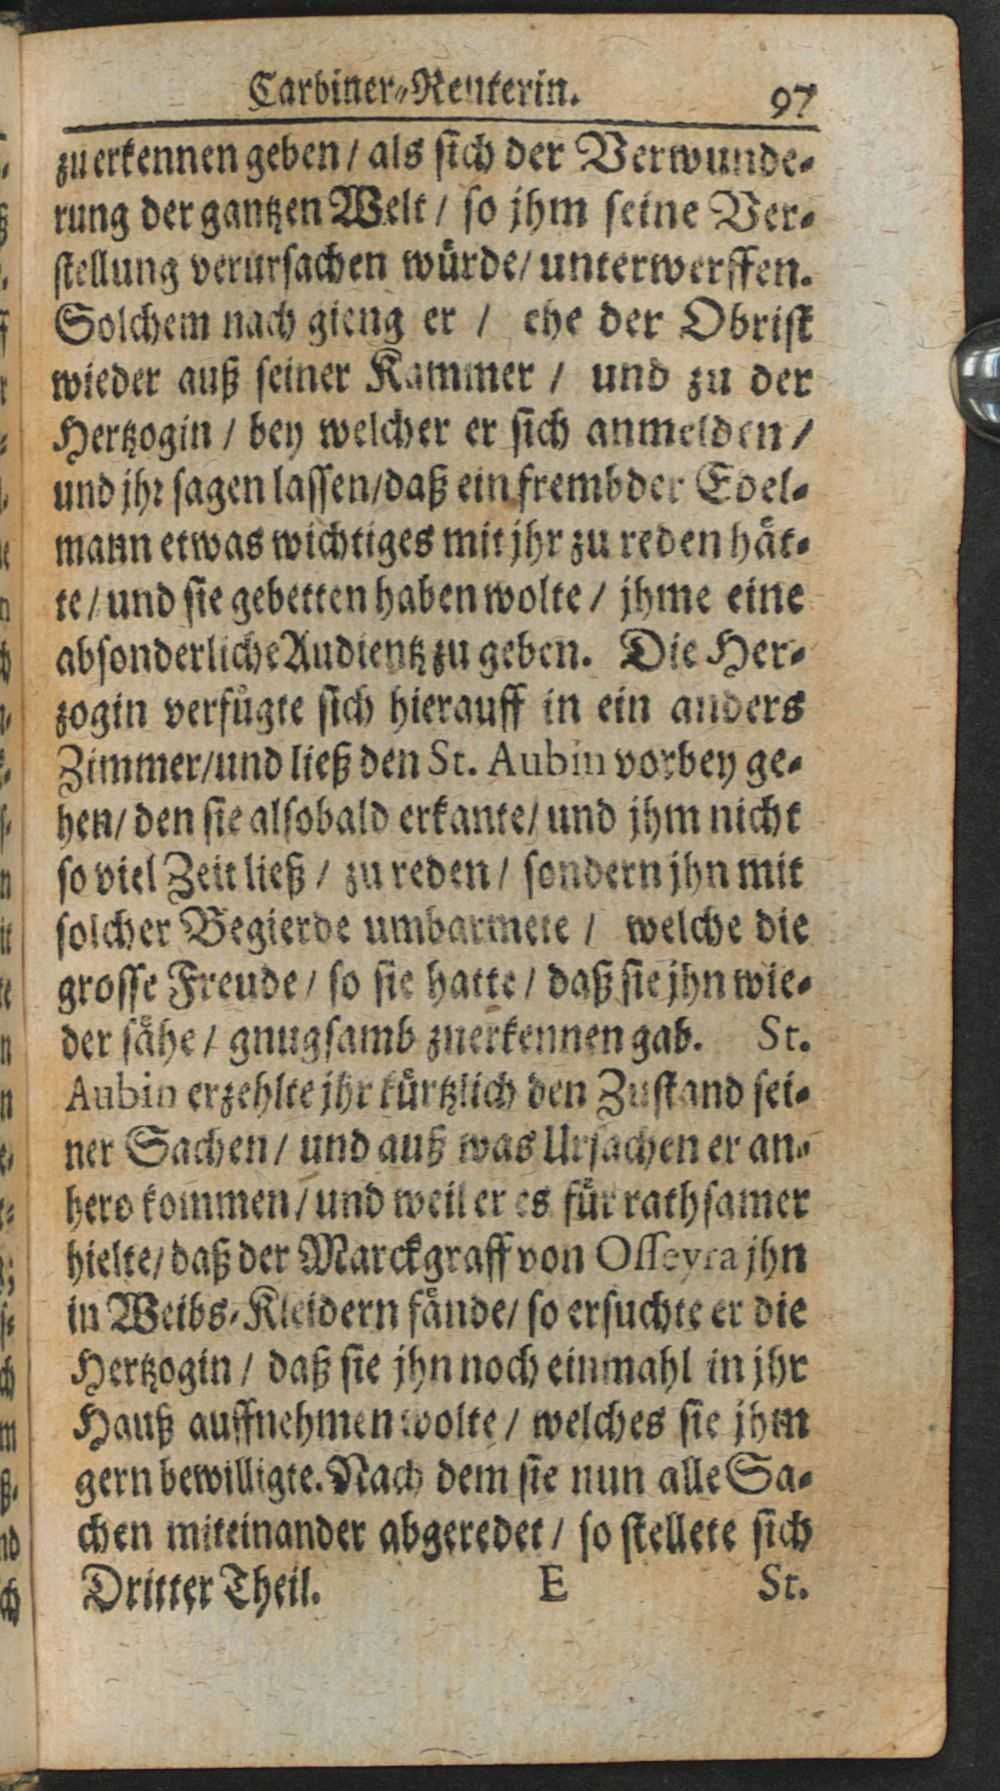 Carbiner-Reuterin. 97
zu erkennen geben / als sich der Verwunde-
rung der gantzen Welt / so jhm seine Ver-
stellung verursachen würde / unterwerffen.
Solchem nach gieng er / ehe der Obrist
wieder auß seiner Kammer / und zu der
Hertzogin / bey welcher er sich anmelden /
und jhr sagen lassen / daß ein frembder Edel-
mann etwas wichtiges mit jhr zu reden hät-
te / und sie gebetten haben wolte / jhme eine
absonderliche Audientz zu geben. Die Her-
zogin verfügte sich hierauff in ein anders
Zimmer / und ließ den St. Aubin vorbey ge-
hen / den sie alsobald erkante / und jhm nicht
so viel Zeit ließ / zu reden / sondern jhn mit
solcher Begierde umbarmete / welche die
grosse Freude / so sie hatte / daß sie jhn wie-
der sähe / gnugsamb zuerkennen gab. St.
Aubin erzehlte jhr kürtzlich den Zustand sei-
ner Sachen / und auß was Ursachen er an-
hero kommen / und weil er es für rathsamer
hielte / daß der Marckgraff von Osseyra jhn
in Weibs-Kleidern fände / so ersuchte er die
Hertzogin / daß sie jhn noch einmahl in jhr
Hauß auffnehmen wolte / welches sie jhm
gern bewilligte. Nach dem sie nun alle Sa-
chen miteinander abgeredet / so stellete sich
Dritter Theil. E St.